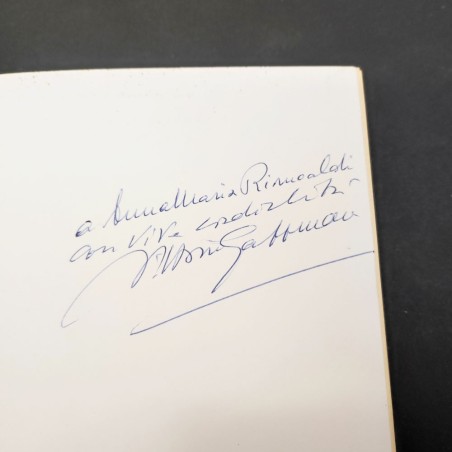 a AnnaMaria Rimoaldi
con vive cordialità
Vittorio Gassman